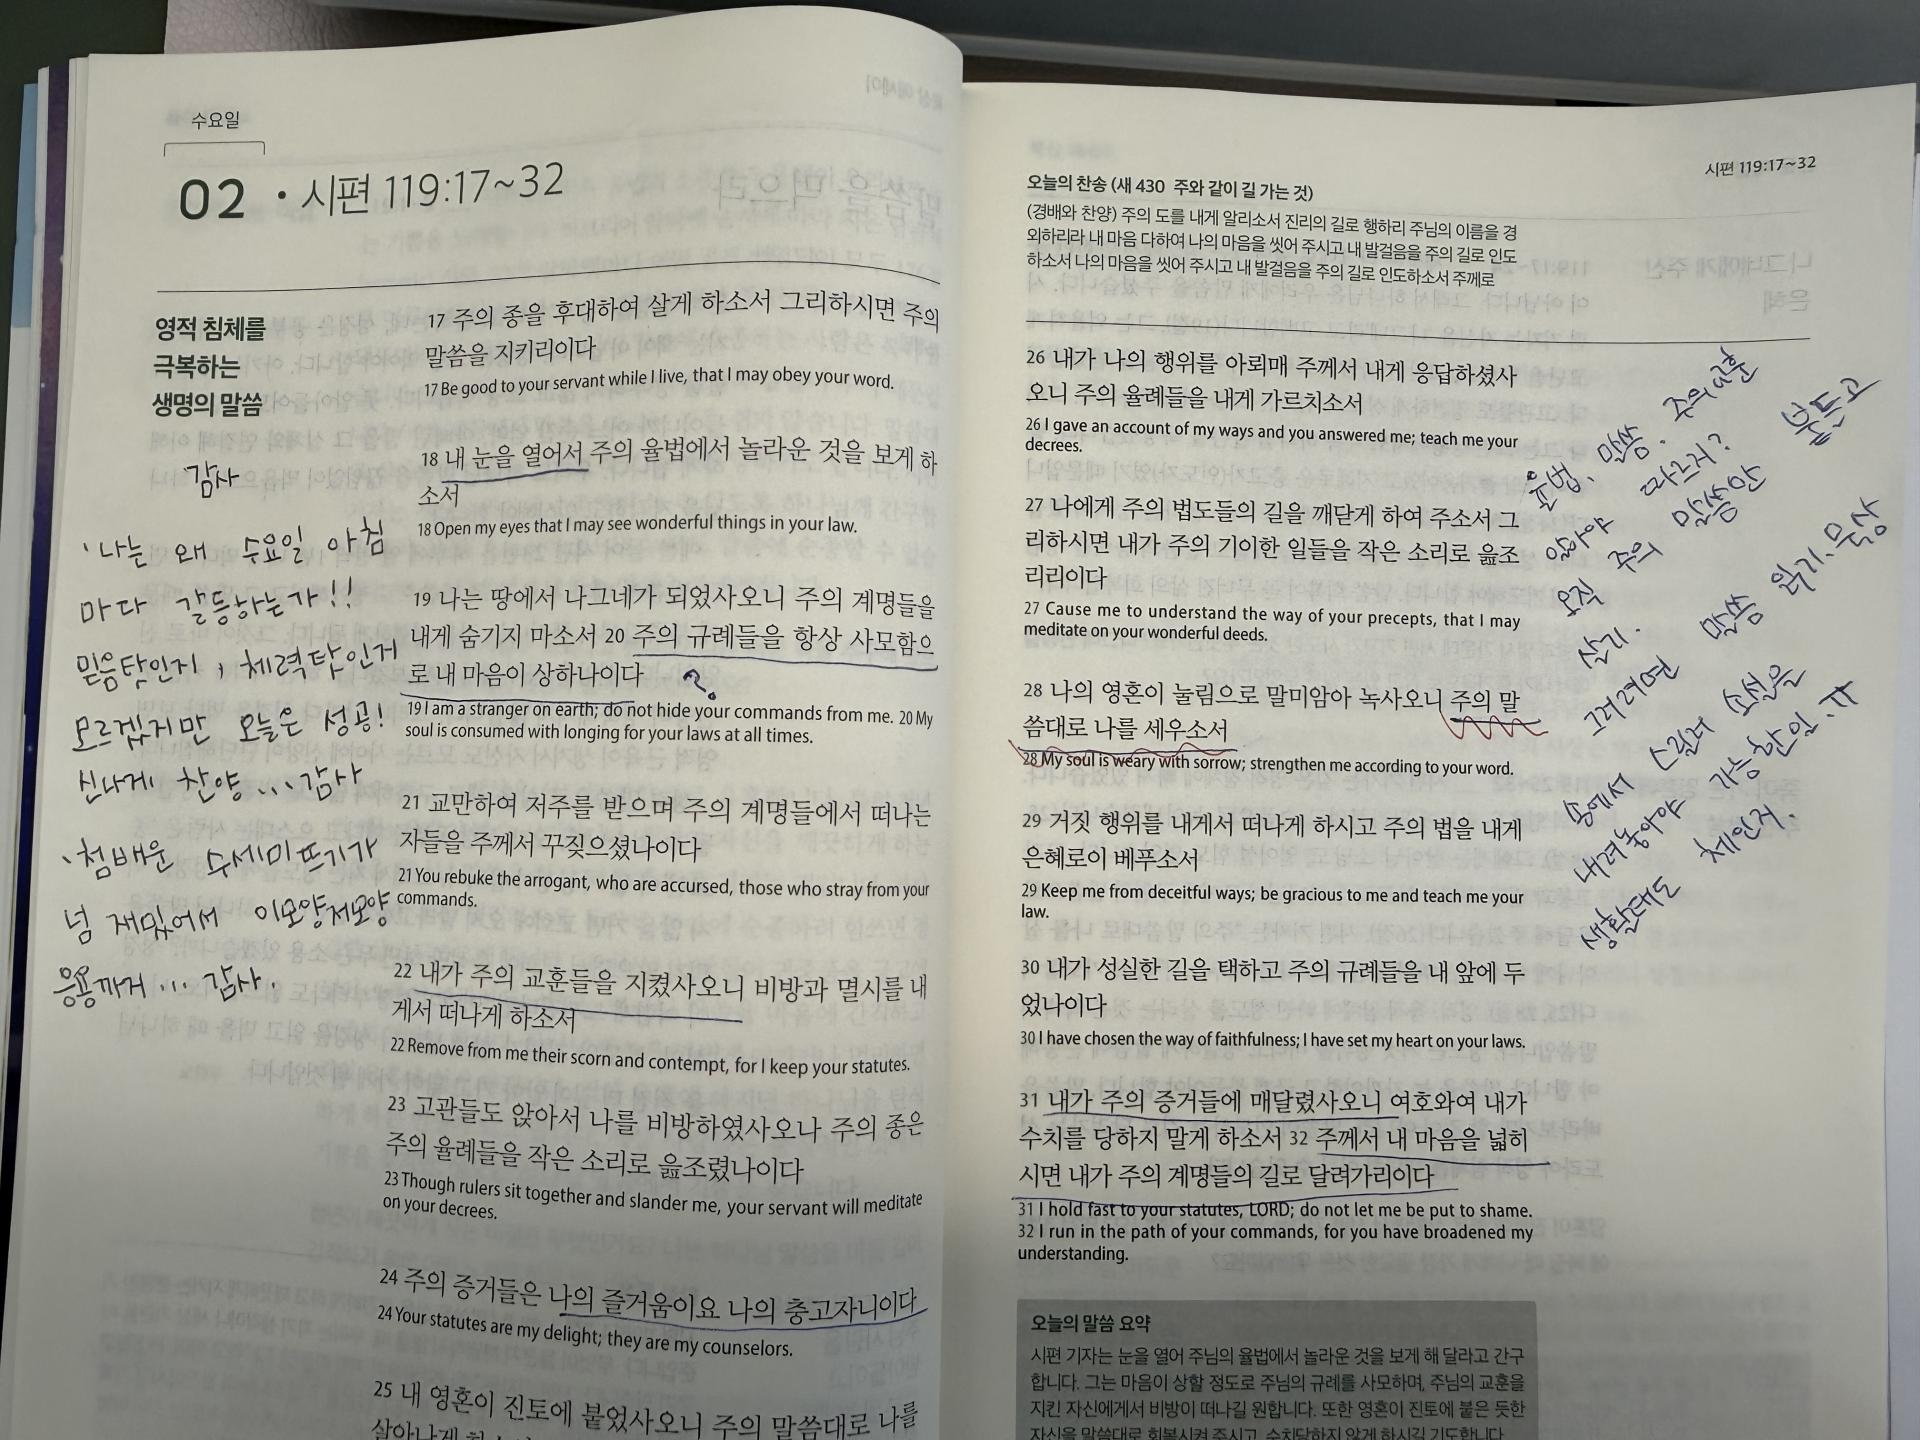 수요일
02 · 시편 119:17~32
영적 침체를
극복하는
생명의 말씀
감사
' 나는 왜 수요일 아침
마다 갈등하는가!!
믿음탓인지, 체력탓인거
모르겠지만 오늘은 성공!
신나게 찬양... 감사
' 첨배운 수세미뜨기가
넘 재밌어서 이모양저모양
응용까지... 감사.
17 주의 종을 후대하여 살게 하소서 그리하시면 주의
말씀을 지키리이다
17 Be good to your servant while I live, that I may obey your word.
18 내 눈을 열어서 주의 율법에서 놀라운 것을 보게 하
소서
18 Open my eyes that I may see wonderful things in your law.
19 나는 땅에서 나그네가 되었사오니 주의 계명들을
내게 숨기지 마소서 20 주의 규례들을 항상 사모함으
로 내 마음이 상하나이다 ?
19 I am a stranger on earth; do not hide your commands from me. 20 My
soul is consumed with longing for your laws at all times.
21 교만하여 저주를 받으며 주의 계명들에서 떠나는
자들을 주께서 꾸짖으셨나이다
21 You rebuke the arrogant, who are accursed, those who stray from your
commands.
22 내가 주의 교훈들을 지켰사오니 비방과 멸시를 내
게서 떠나게 하소서
22 Remove from me their scorn and contempt, for I keep your statutes.
23 고관들도 앉아서 나를 비방하였사오나 주의 종은
주의 율례들을 작은 소리로 읊조렸나이다
23 Though rulers sit together and slander me, your servant will meditate
on your decrees.
24 주의 증거들은 나의 즐거움이요 나의 충고자니이다
24 Your statutes are my delight; they are my counselors.
25 내 영혼이 진토에 붙었사오니 주의 말씀대로 나를
살아나게
시편 119:17~32
오늘의 찬송 (새 430 주와 같이 길 가는 것)
(경배와 찬양) 주의 도를 내게 알리소서 진리의 길로 행하리 주님의 이름을 경
외하리라 내 마음 다하여 나의 마음을 씻어 주시고 내 발걸음을 주의 길로 인도
하소서 나의 마음을 씻어 주시고 내 발걸음을 주의 길로 인도하소서 주께로
26 내가 나의 행위를 아뢰매 주께서 내게 응답하셨사
오니 주의 율례들을 내게 가르치소서
26 I gave an account of my ways and you answered me; teach me your
decrees.
27 나에게 주의 법도들의 길을 깨닫게 하여 주소서 그
리하시면 내가 주의 기이한 일들을 작은 소리로 읊조
리리이다
27 Cause me to understand the way of your precepts, that I may
meditate on your wonderful deeds.
28 나의 영혼이 눌림으로 말미암아 녹사오니 주의 말
씀대로 나를 세우소서
28 My soul is weary with sorrow; strengthen me according to your word.
29 거짓 행위를 내게서 떠나게 하시고 주의 법을 내게
은혜로이 베푸소서
29 Keep me from deceitful ways; be gracious to me and teach me your
law.
30 내가 성실한 길을 택하고 주의 규례들을 내 앞에 두
었나이다
30 I have chosen the way of faithfulness; I have set my heart on your laws.
31 내가 주의 증거들에 매달렸사오니 여호와여 내가
수치를 당하지 말게 하소서 32 주께서 내 마음을 넓히
시면 내가 주의 계명들의 길로 달려가리이다
31 I hold fast to your statutes, LORD; do not let me be put to shame.
32 I run in the path of your commands, for you have broadened my
understanding.
율법. 말씀. 주의 교훈
다른거?
오직 주의 말씀만 붙들고
살기.
그러려면 말씀 읽기. 묵상
손에서 스릴러 소설을
내려놓아야 가능한일.!!
생활태도 체인지.
오늘의 말씀 요약
시편 기자는 눈을 열어 주님의 율법에서 놀라운 것을 보게 해 달라고 간구
합니다. 그는 마음이 상할 정도로 주님의 규례를 사모하며, 주님의 교훈을
지킨 자신에게서 비방이 떠나길 원합니다. 또한 영혼이 진토에 붙은 듯한
자신을 말씀대로 회복시켜 주시고, 수치당하지 않게 하시길 기도합니다.